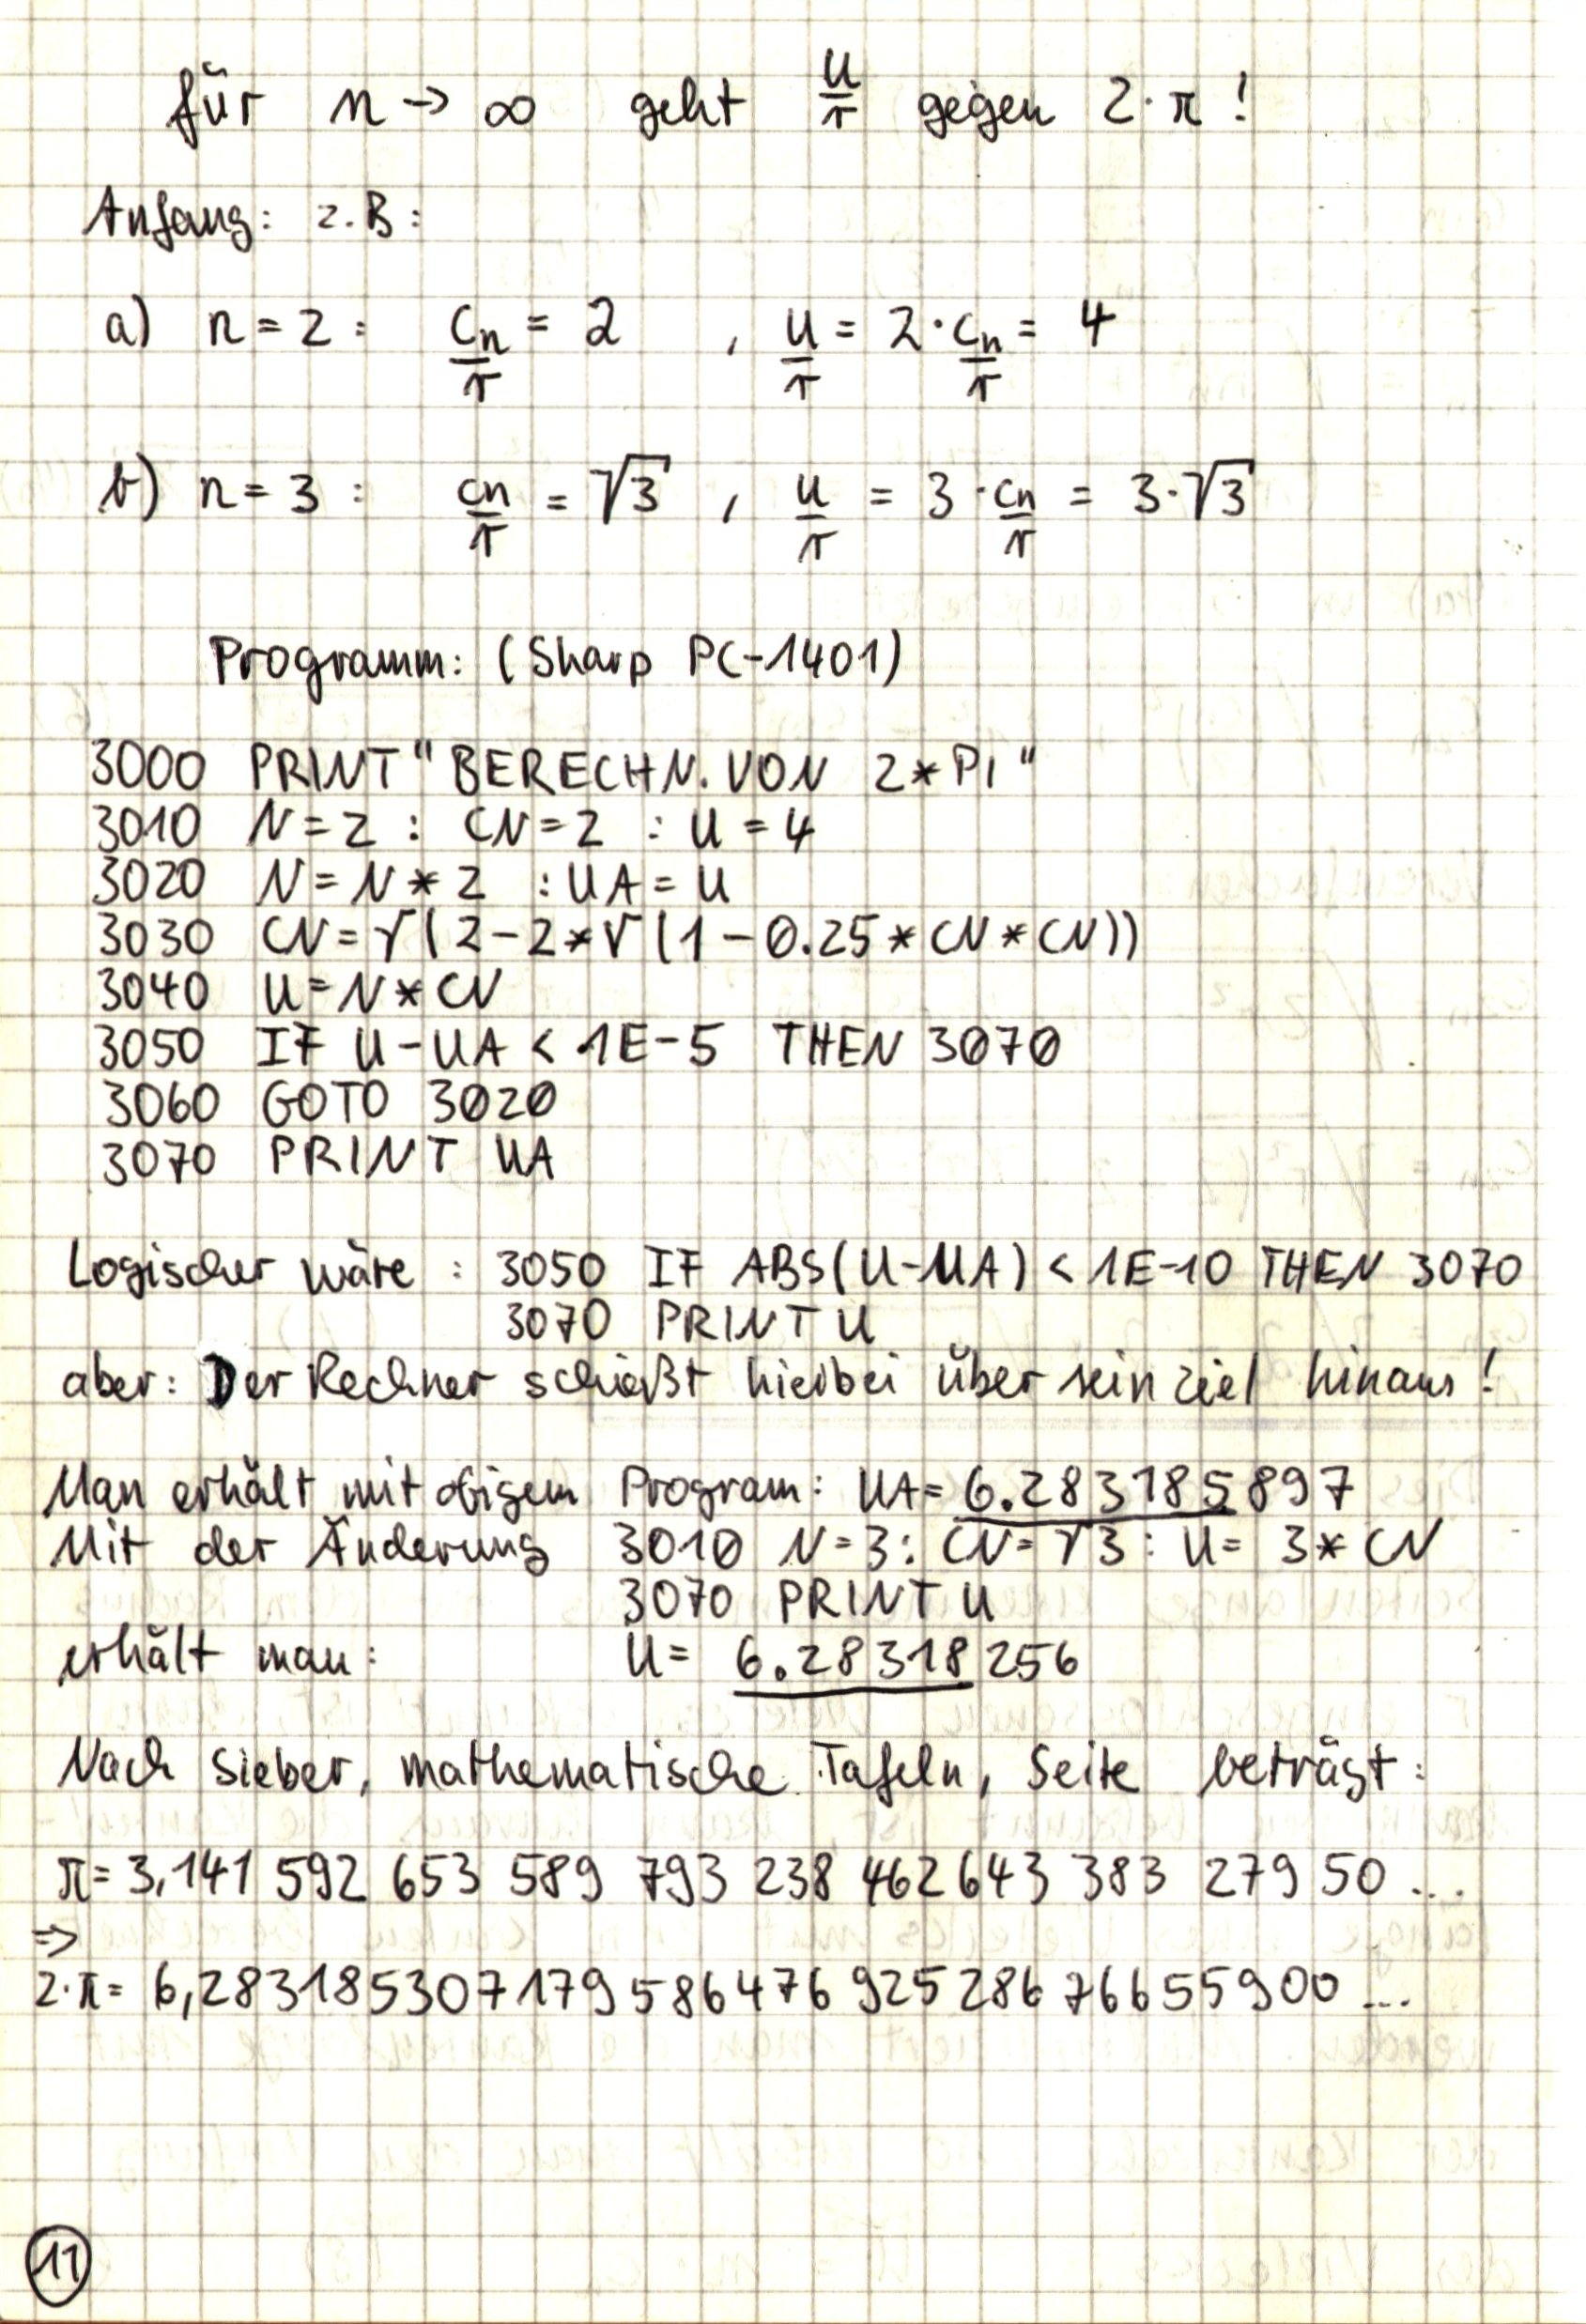 für n → ∞ geht u/r gegen 2·π!
Anfang: z.B:
a) n = 2: cn/r = 2 , u/r = 2·cn/r = 4
b) n = 3: cn/r = √3 , u/r = 3·cn/r = 3·√3
Programm: (Sharp PC-1401)
3000 PRINT "BERECHN. VON 2*PI"
3010 N=2 : CN=2 : U=4
3020 N=N*2 : UA=U
3030 CN=√(2-2*√(1-0.25*CN*CN))
3040 U=N*CN
3050 IF U-UA < 1E-5 THEN 3070
3060 GOTO 3020
3070 PRINT UA
Logischer wäre : 3050 IF ABS(U-UA) < 1E-10 THEN 3070
3070 PRINT U
aber: Der Rechner schießt hierbei über sein Ziel hinaus!
Man erhält mit obigem Program: UA= 6.283185897
Mit der Änderung 3010 N=3: CN=√3: U= 3*CN
3070 PRINT U
erhält man: U= 6.28318256
Nach Sieber, mathematische Tafeln, Seite beträgt:
π= 3,141 592 653 589 793 238 462 643 383 279 50 ...
=>
2·π= 6,283185307179586476 925286 76655900 ...
11